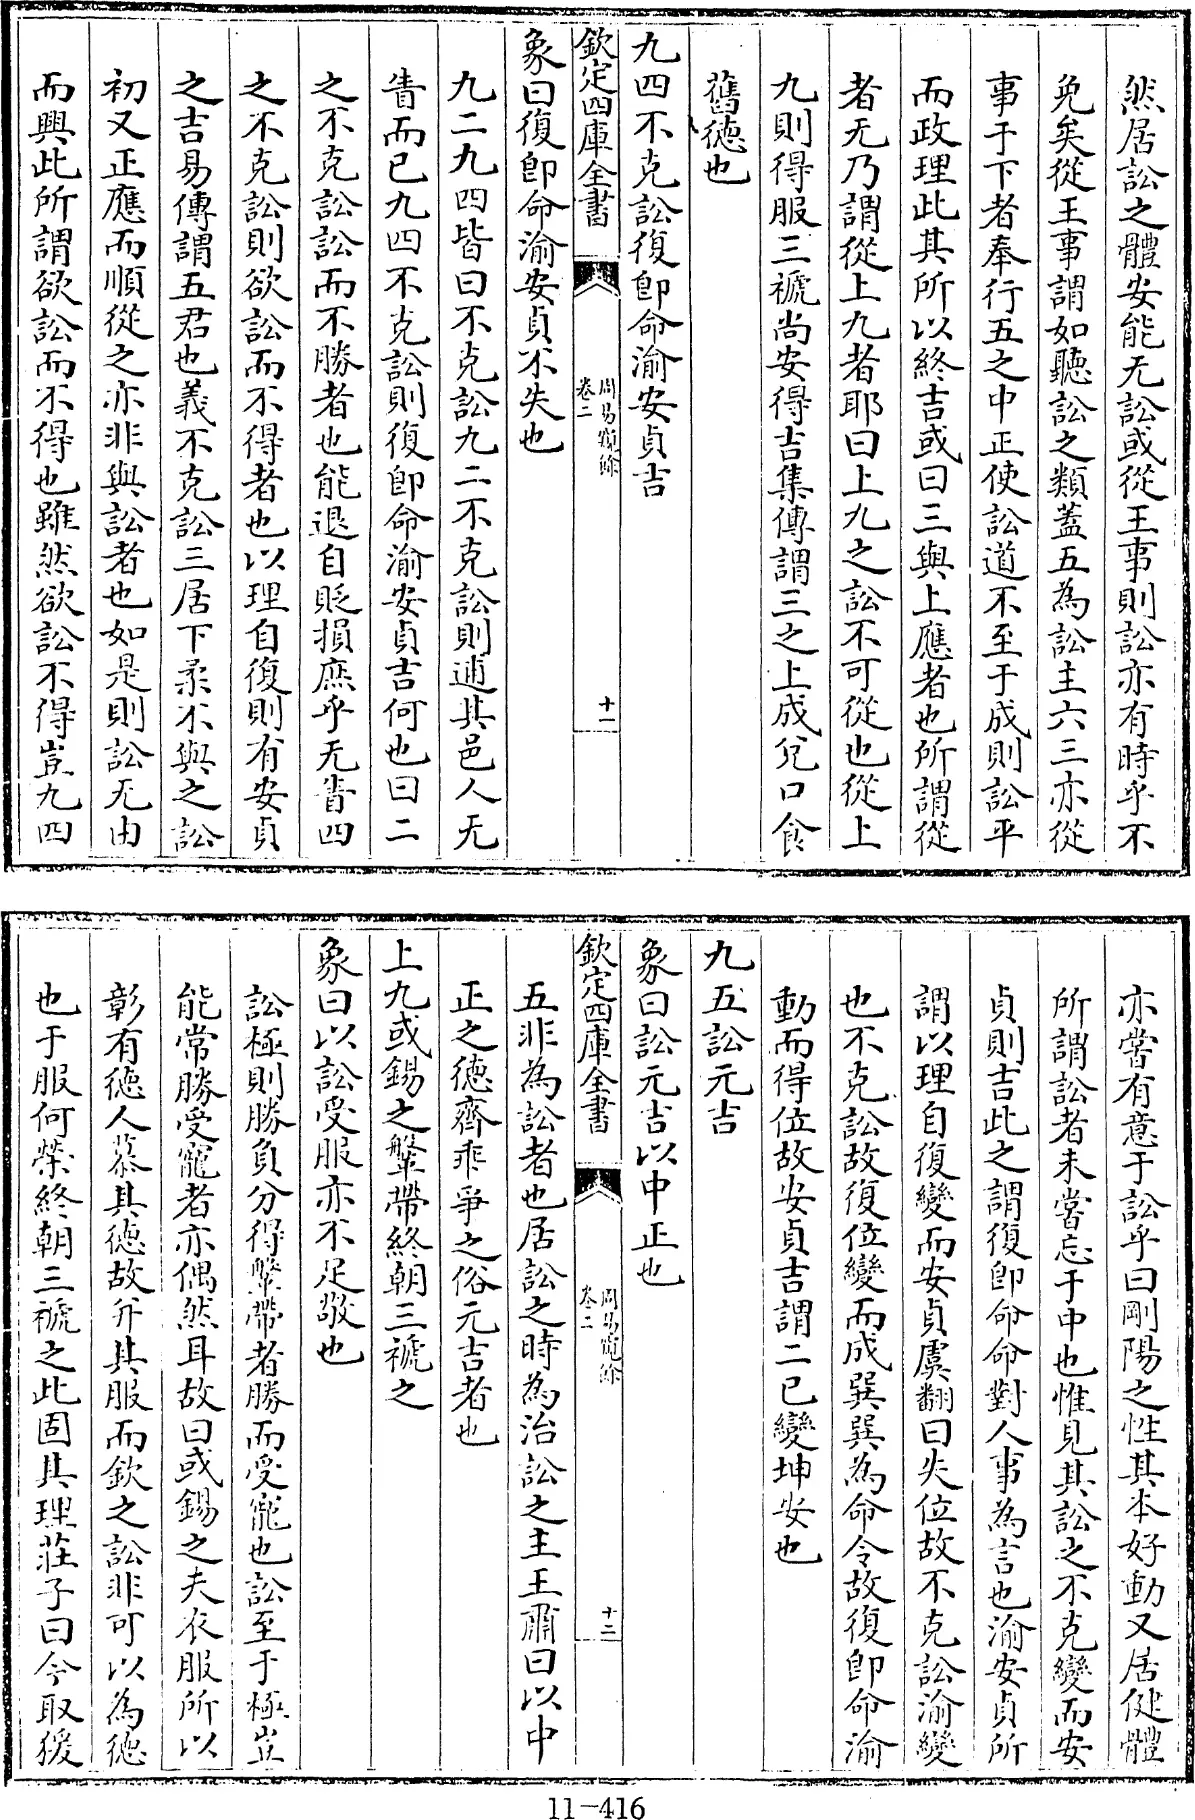 然居訟之體安能无訟或從王事則訟亦有時乎不
免矣從王事謂如聽訟之類蓋五為訟主六三亦從
事于下者奉行五之中正使訟道不至于成則訟平
而政理此其所以終吉或曰三與上應者也所謂從
者无乃謂從上九者耶曰上九之訟不可從也從上
九則得服三褫尚安得吉集傳謂三之上成兌口食
舊德也
九四不克訟復卽命渝安貞吉
欽定四庫全書
周易窺餘
卷二
十一
象曰復卽命渝安貞不失也
九二九四皆曰不克訟九二不克訟則逋其邑人无
眚而已九四不克訟則復卽命渝安貞吉何也曰二
之不克訟訟而不勝者也能退自貶損庶乎无眚四
之不克訟則欲訟而不得者也以理自復則有安貞
之吉易傳謂五君也義不克訟三居下柔不與之訟
初又正應而順從之亦非與訟者也如是則訟无由
而興此所謂欲訟而不得也雖然欲訟不得豈九四
亦嘗有意于訟乎曰剛陽之性其本好動又居健體
所謂訟者未嘗忘于中也惟見其訟之不克變而安
貞則吉此之謂復卽命命對人事為言也渝安貞所
謂以理自復變而安貞虞翻曰失位故不克訟渝變
也不克訟故復位變而成巽巽為命令故復卽命渝
動而得位故安貞吉謂二已變坤安也
九五訟元吉
象曰訟元吉以中正也
欽定四庫全書
周易窺餘
卷二
十二
五非為訟者也居訟之時為治訟之主王肅曰以中
正之德齊乖爭之俗元吉者也
上九或錫之鞶帶終朝三褫之
象曰以訟受服亦不足敬也
訟極則勝負分得鞶帶者勝而受寵也訟至于極豈
能常勝受寵者亦偶然耳故曰或錫之夫衣服所以
彰有德人慕其德故并其服而欽之訟非可以為德
也于服何榮終朝三褫之此固其理莊子曰今取猨
11-416